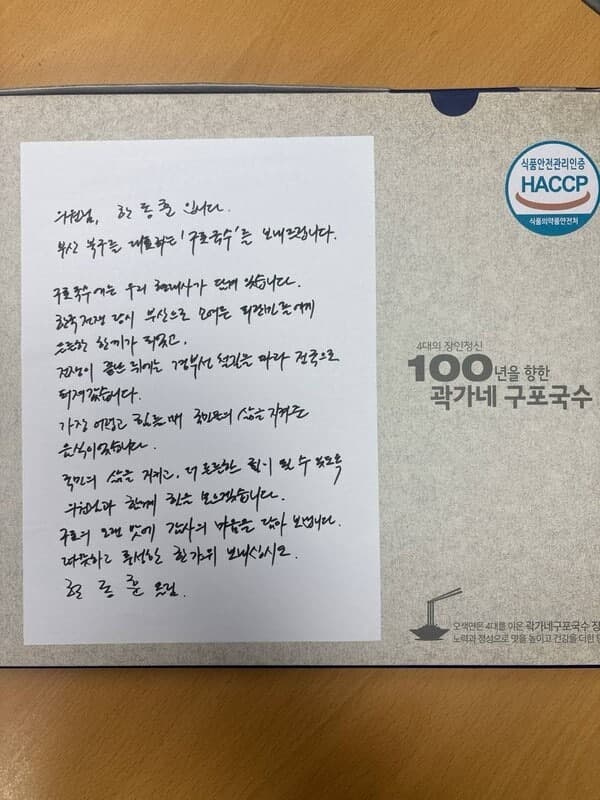 의원님, 한동훈입니다.
부산 북구를 대표하는 '구포국수'를 보내드립니다.
구포국수에는 우리 현대사가 담겨 있습니다.
한국전쟁 당시 부산으로 모여든 피란민들에게
든든한 한끼가 되었고,
전쟁이 끝난 뒤에는 경부선 철길을 따라 전국으로
퍼져갔습니다.
가장 어렵고 힘든 때 국민들의 삶을 지켜준
음식이었습니다.
국민의 삶을 지키고, 더 든든한 힘이 될 수 있도록
의원님과 함께 힘을 모으겠습니다.
구포의 오랜 맛에 감사의 마음을 담아 보냅니다.
따뜻하고 풍성한 한가위 보내십시오.
한동훈 드림.
식품안전관리인증
HACCP
식품의약품안전처
4대의 장인정신
100년을 향한
곽가네 구포국수
오색면은 4대를 이은 곽가네구포국수 장
노력과 정성으로 맛을 높이고 건강을 더한